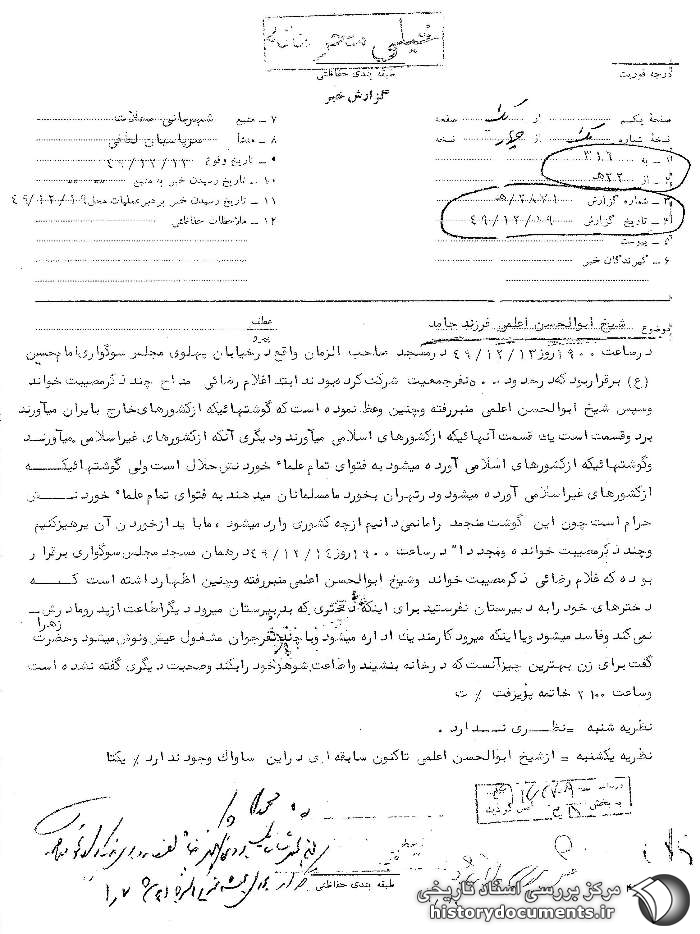 خیلی محرمانه
طبقه بندی حفاظتی
گزارش خبر
درجه فوریت
صفحه یکم از یک صفحه
نسخه شماره یک از چهار نسخه
۱ـ به ۳۱۶
۲ـ از ۲۲ه
۳ـ شماره گزارش
۴ـ تاریخ گزارش ۴۹/۱۲/۱۹
۵ـ پیوست
۶ـ گیرندگان خبر
۷ـ منبع شهربانی محلات
۸ـ منشأ سرپاسبان لطفی
۹ـ تاریخ وقوع ۴۹/۱۲/۱۳
۱۰ـ تاریخ رسیدن خبر به منبع
۱۱ـ تاریخ رسیدن خبر بر هبر عملیات محل ۴۹/۱۲/۱۹
۱۲ـ ملاحظات حفاظتی
موضوع شیخ ابوالحسن اعلمی فرزند حامد
عطف
پیرو
در ساعت ۱۹۰۰ روز ۴۹/۱۲/۱۳ در مسجد صاحب الزمان واقع در خیابان پهلوی مجلس سوگواری امام حسین
(ع) برقرار بود که در حدود ۵۰۰ نفر جمعیت شرکت کرده بودند ابتدا غلام رضائی مداح چند ذکر مصیبت خواند
وسپس شیخ ابوالحسن اعلمی منبر رفته وچنین وعظ نموده است که گوشتهائیکه از کشورهای خارج بایران میآورند
برد وقسمت است یك قسمت آنهائیکه از کشورهای اسلامی میآورند ودیگری آنکه از کشورهای غیر اسلامی میآورند
وگوشتهائیکه از کشورهای اسلامی آورده میشود به فتوای تمام علماء خوردنش حلال است ولی گوشتهائیکه
از کشورهای غیر اسلامی آورده میشود ودر تهران بخورد ما مسلمانان میدهند به فتوای تمام علماء خوردنش
حرام است چون این گوشت منجمد را ما نمی دانیم از چه کشوری وارد میشود ، ما باید از خوردن آن پرهیز کنیم
وچند ذکر مصیبت خوانده ومجددا" در ساعت ۱۹۰۰ روز ۴۹/۱۲/۱۴ در همان مسجد مجلس سوگواری برقرار
بوده که غلام رضائی ذکر مصیبت خواند وشیخ ابوالحسن اعلمی منبر رفته وچنین اظهار داشته است که
دخترهای خود را به دبیرستان نفرستید برای اینکه دختری که بدبیرستان میرود دیگر اطاعت از پدر ومادرش
نمی کند وفاسد میشود ویا اینکه میرود کارمند یك اداره میشود وبا چند نفر جوان مشغول عیش ونوش میشود وحضرت زهرا
گفت برای زن بهترین چیز آنست که در خانه بنشیند واطاعت شوهر خود را بکند وصحبت دیگری گفته نشده است
وساعت ۲۱۰۰ خاتمه پذیرفت / ت
نظریه شنبه = نظری ندارد .
نظریه یکشنبه = از شیخ ابوالحسن اعلمی تاکنون سابقه ای در این ساواك وجود ندارد / یکتا
به بخش
طبقه بندی حفاظتی
مرکز بررسی اسناد تاریخی
historydocuments.ir